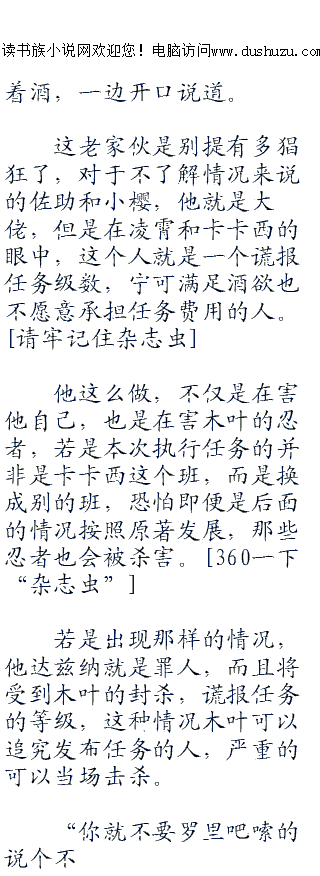 读书族小说网欢迎您！电脑访问www.dushuzu.com
着酒，一边开口说道。
这老家伙是别提有多猖
狂了，对于不了解情况来说
的佐助和小樱，他就是大
佬，但是在凌霄和卡卡西的
眼中，这个人就是一个谎报
任务级数，宁可满足酒欲也
不愿意承担任务费用的人。
[请牢记住杂志虫]
他这么做，不仅是在害
他自己，也是在害木叶的忍
者，若是本次执行任务的并
非是卡卡西这个班，而是换
成别的班，恐怕即便是后面
的情况按照原著发展，那些
忍者也会被杀害。[360一下
“杂志虫”]
若是出现那样的情况，
他达兹纳就是罪人，而且将
受到木叶的封杀，谎报任务
的等级，这种情况木叶可以
追究发布任务的人，严重的
可以当场击杀。
“你就不要罗里吧嗦的
说个不